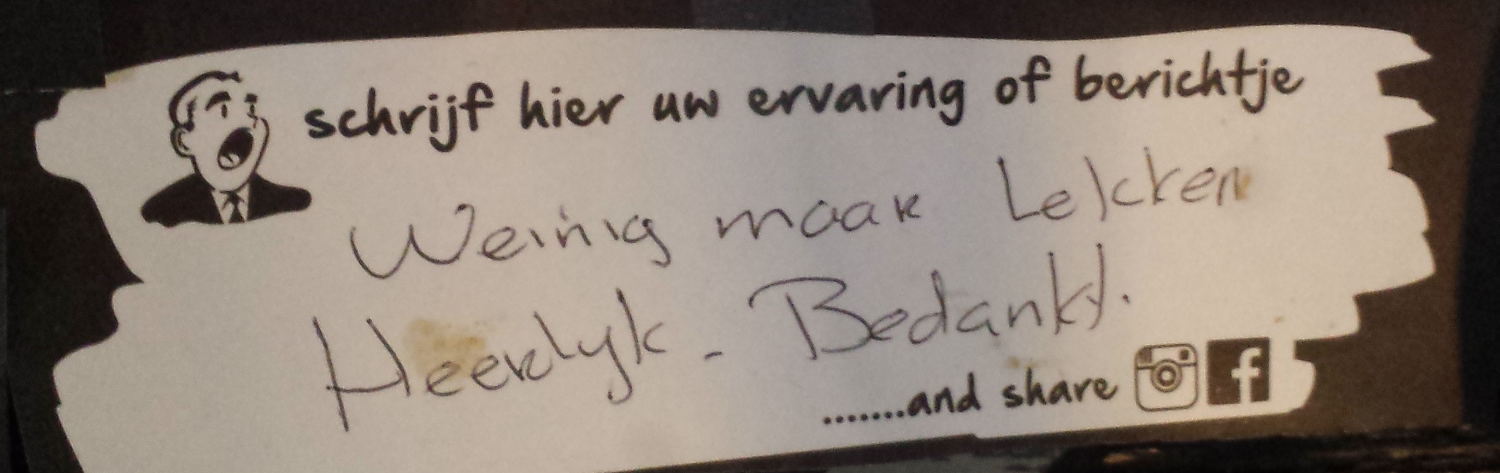 schrijf hier uw ervaring of berichtje
Weinig maar Lekker
Heerlyk - Bedankt.
.......and share f